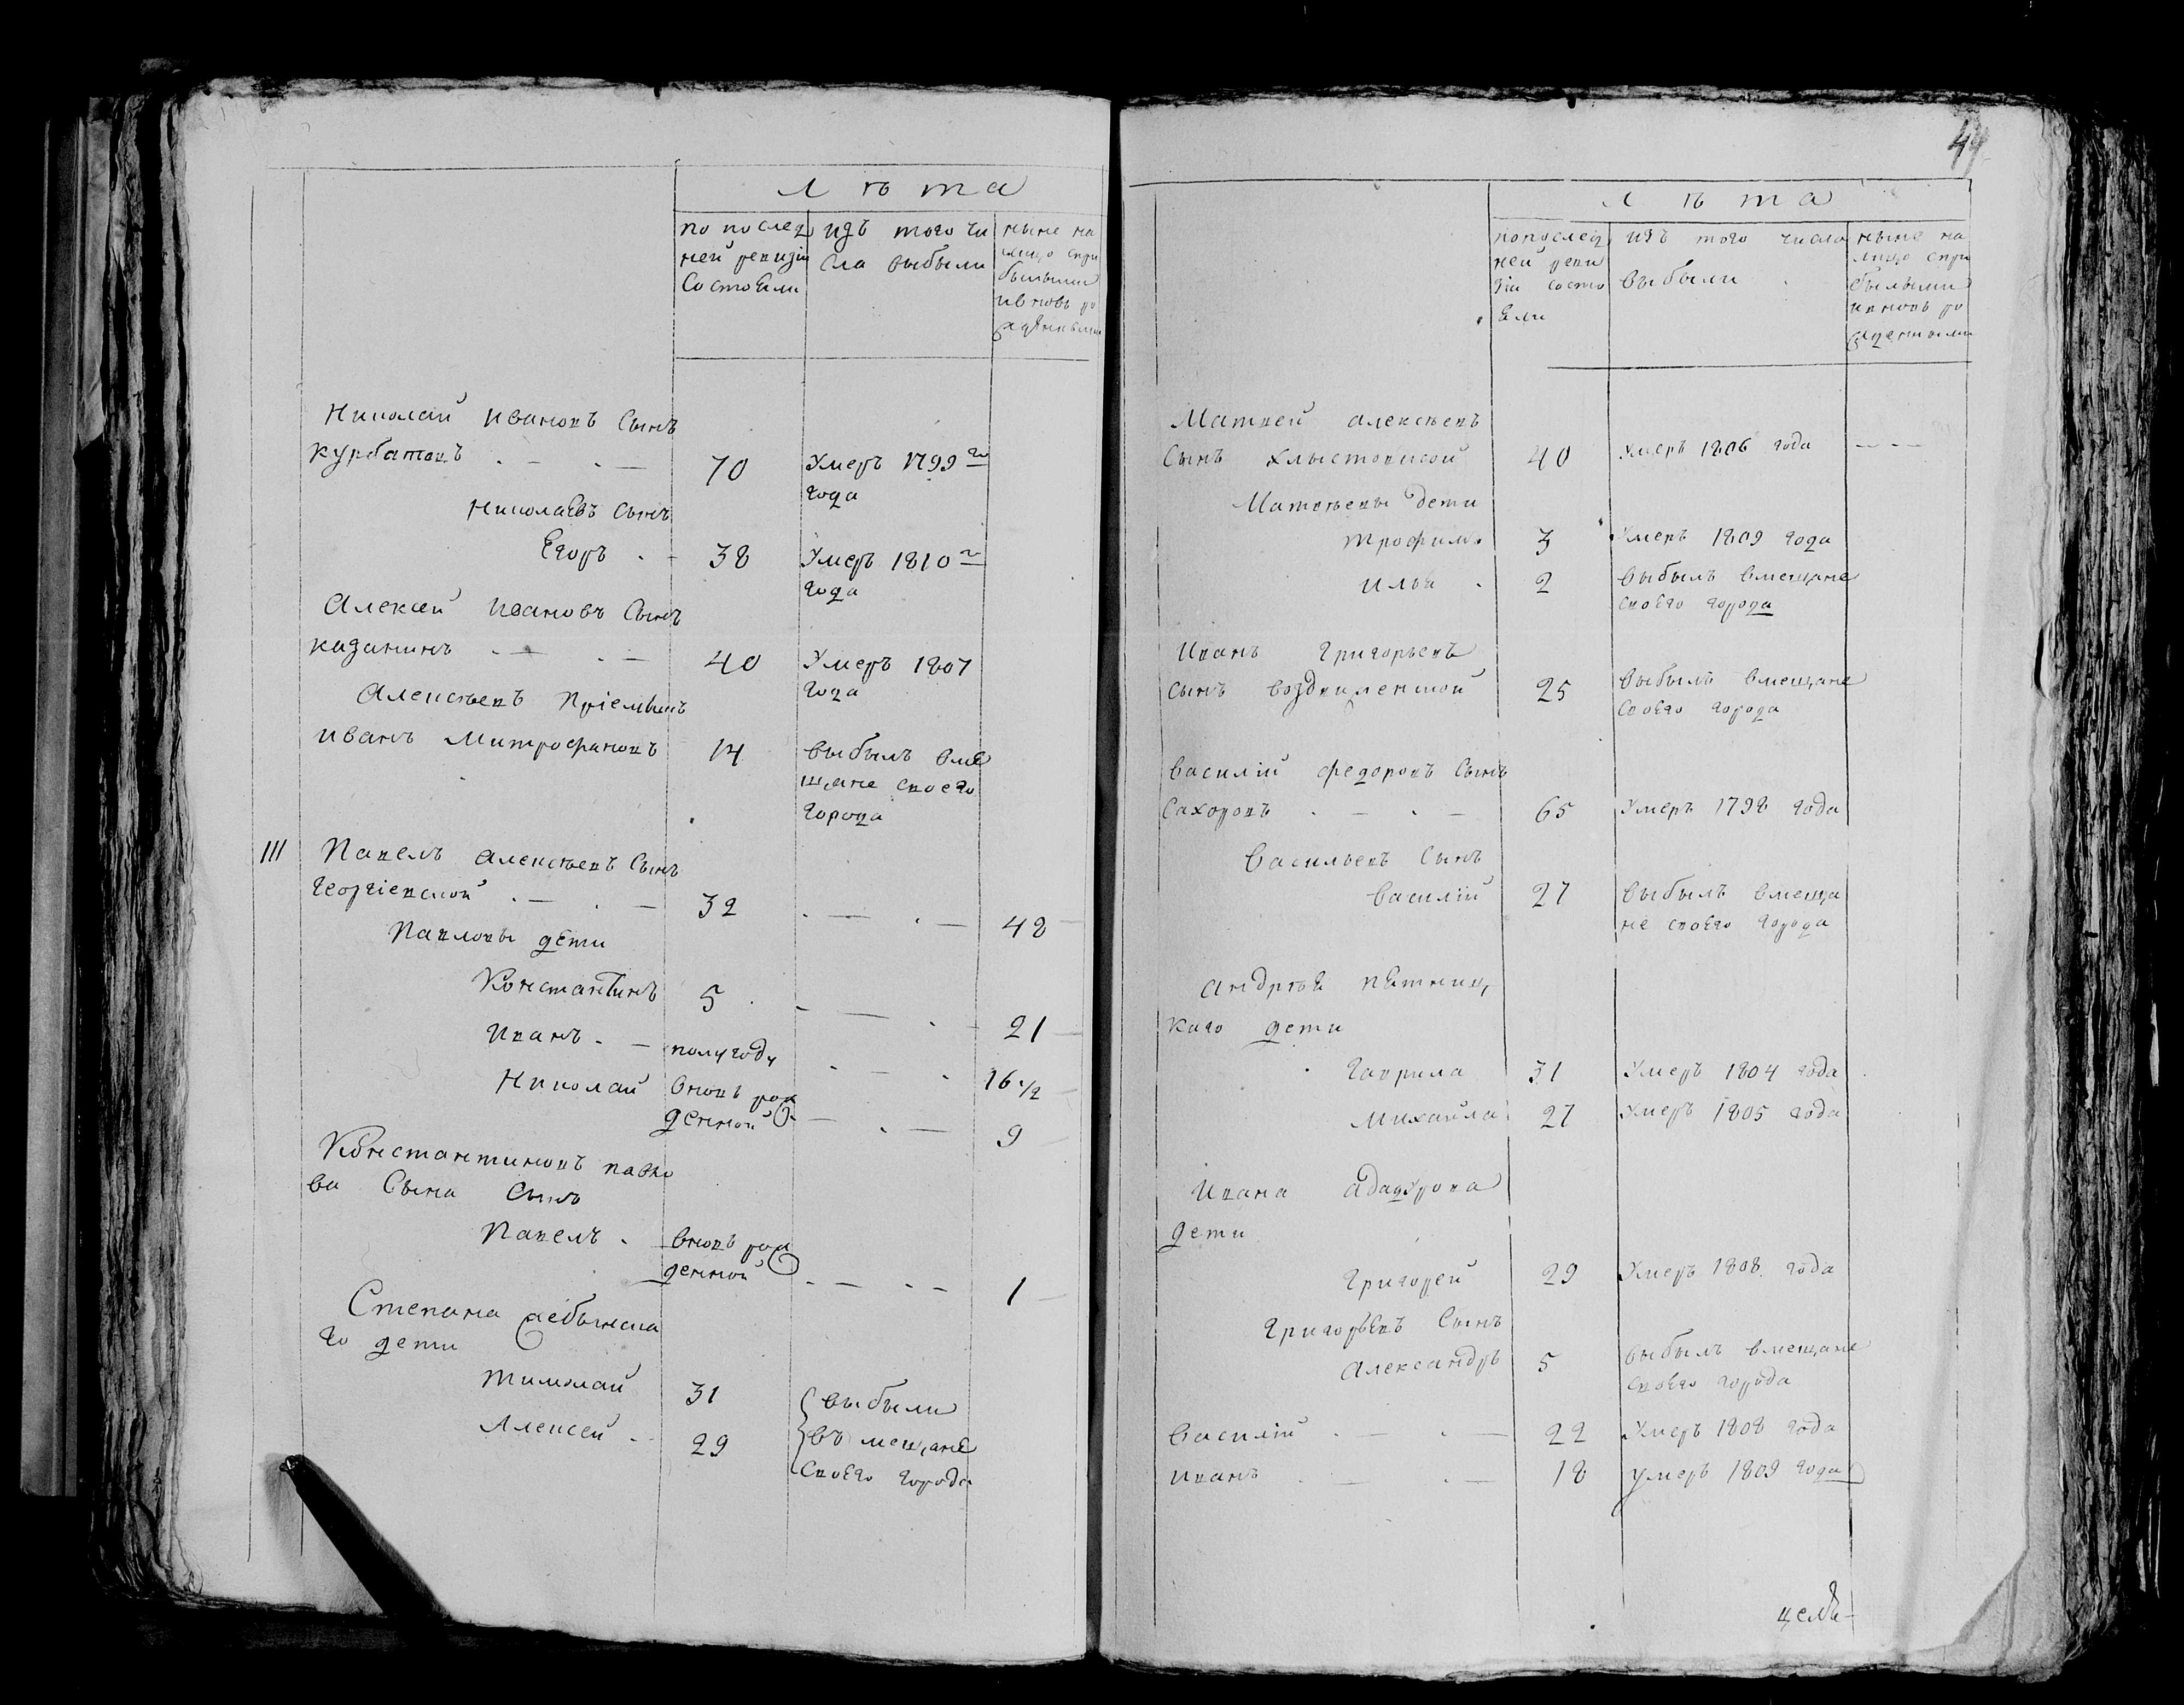 Лѣта
по послед
ней ревизіи
состояли
изъ того чи
сла выбыли
ныне на
лицо с при
былыми
и вновь ро
жденными
Николай Ивановъ сынъ
Курбатовъ . — . — 70 Умеръ 1799го
года
Николаевъ сынъ
Егоръ . - 38 Умеръ 1810го
года
Алексей Ивановъ сынъ
Казанинъ . — . — 40 Умеръ 1807
года
Алексѣевъ пріемышъ
Иванъ Митрофановъ 14 выбылъ вме
щане своего
города
III Павелъ Алексѣевъ сынъ
Георгіевской . — . — 32 . — . — 48
Павловы дети
Константинъ 5 . — . — 21
Иванъ . — полугоду . — . 16 1/2
Николай вновь рож
денной . — . — 9
Константиновъ павло
ва сына сынъ
Павелъ . вновь рож
денной . — . — 1
Степана
го дети
31 выбыли
Алексей . - 29 въ мещане
своего города
49
Лѣта
по послед
ней реви
зіи состо
яли
изъ того числа
выбыли
ныне на
лицо с при
былыми
и вновь ро
жденными
Матвей Алексѣевъ
сынъ Хлыстовской 40 умеръ 1806 года — - -
Матвѣевы дети
Трофимъ 3 Умеръ 1809 года
Илья . 2 выбылъ вмещане
своего города
Иванъ Григорьевъ
сынъ Воздвиженской 25 выбылъ вмещане
своего города
Василій Федоровъ сынъ
Сахоровъ . — . — 65 Умеръ 1798 года
Васильевъ сынъ
Василій 27 выбылъ вмеща
не своего города
Андрѣя Пятниц
каго дети
Гаврила 31 Умеръ 1804 года
Михайла 27 Умеръ 1805 года
Ивана Абадурова
дети
Григорей 29 Умеръ 1808 года
Григорьевъ сынъ
Александръ 5 выбылъ вмещане
своего города
Василій . — . — 22 Умеръ 1808 года
Иванъ . — . — 18 умеръ 1809 года